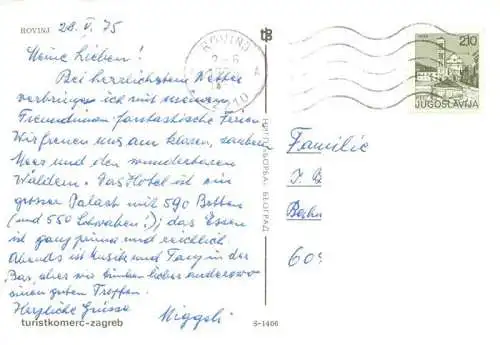 ROVINJ 28. V. 75
Meine Lieben!
Bei herrlichstem Wetter
verbringe ich mit meinen
Freundinnen fantastische Ferien.
Wir freuen uns am klaren, saubern
Meer und den wunderbaren
Wäldern. Das Hotel ist ein
grosser Palast mit 590 Betten
(und 550 Schwaben!); das Essen
ist ganz prima und reichlich.
Abends ist Musik und Tanz in der
Bar, aber wir trinken lieber anderswo
einen guten Tropfen.
Herzliche Grüsse
Miggeli
turistkomerc-zagreb
S-1406
ROVINJ
210
JUGOSLAVIJA
Familie